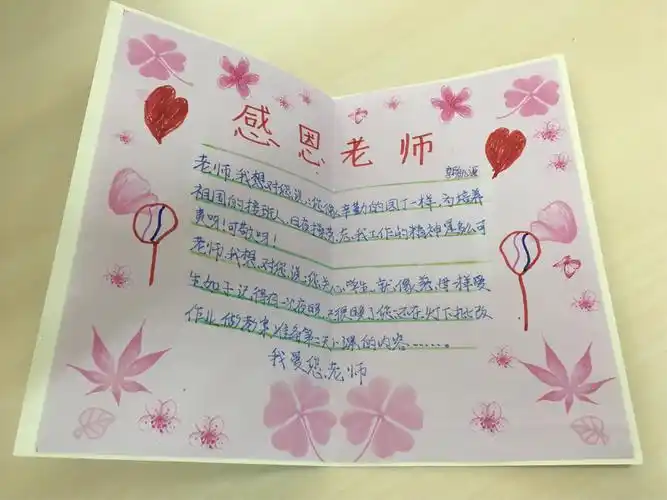 感恩老师
老师,我想对您说:您像辛勤的园丁一样,为培养
祖国的接班人,日夜操劳,忘我工作的精神是多么可
贵呀!可敬呀!
老师,我想对您说:您关心学生,就像慈母一样爱
生如子,记得有一次夜晚,很晚了您还在灯下批改
作业,做教案,准备第二天上课的内容......。
我爱您,老师